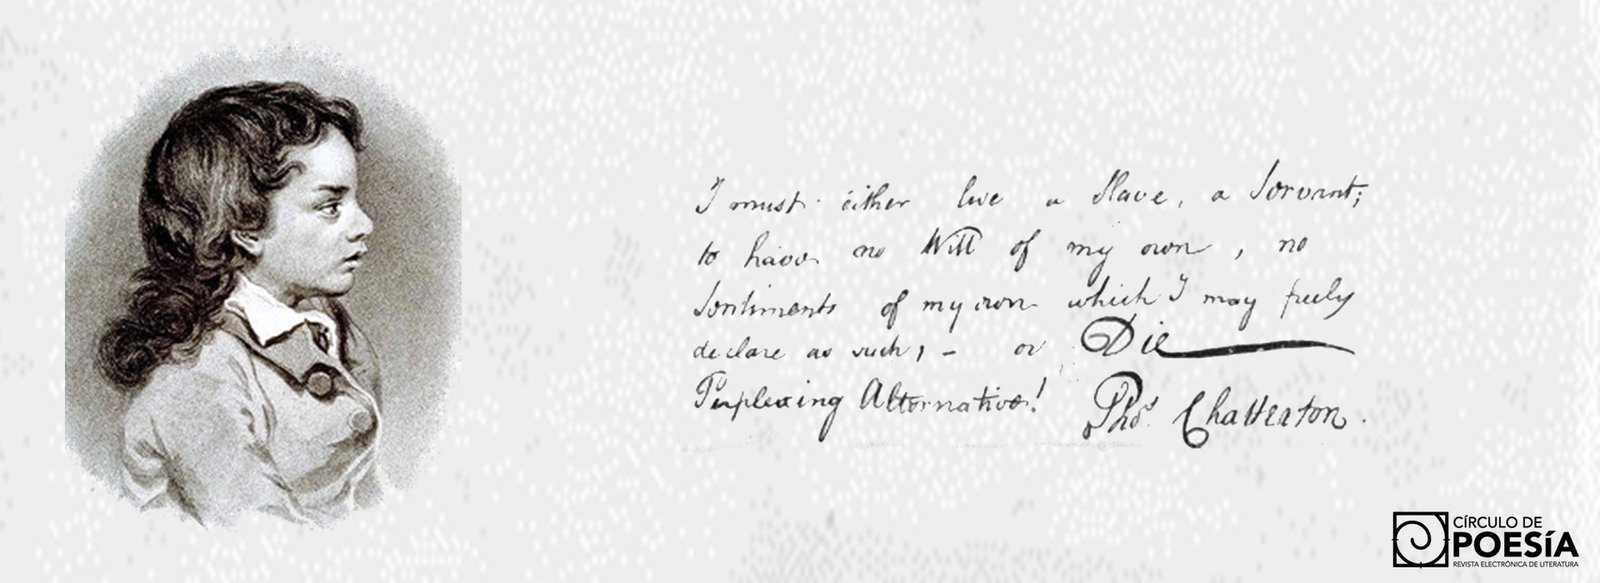 I must either live a Slave, a Servant;
to have no Will of my own, no
Sentiments of my own which I may freely
declare as such; - or Die
Perplexing Alternative!
Thos. Chatterton.
CÍRCULO DE
POESÍA
REVISTA ELECTRÓNICA DE LITERATURA